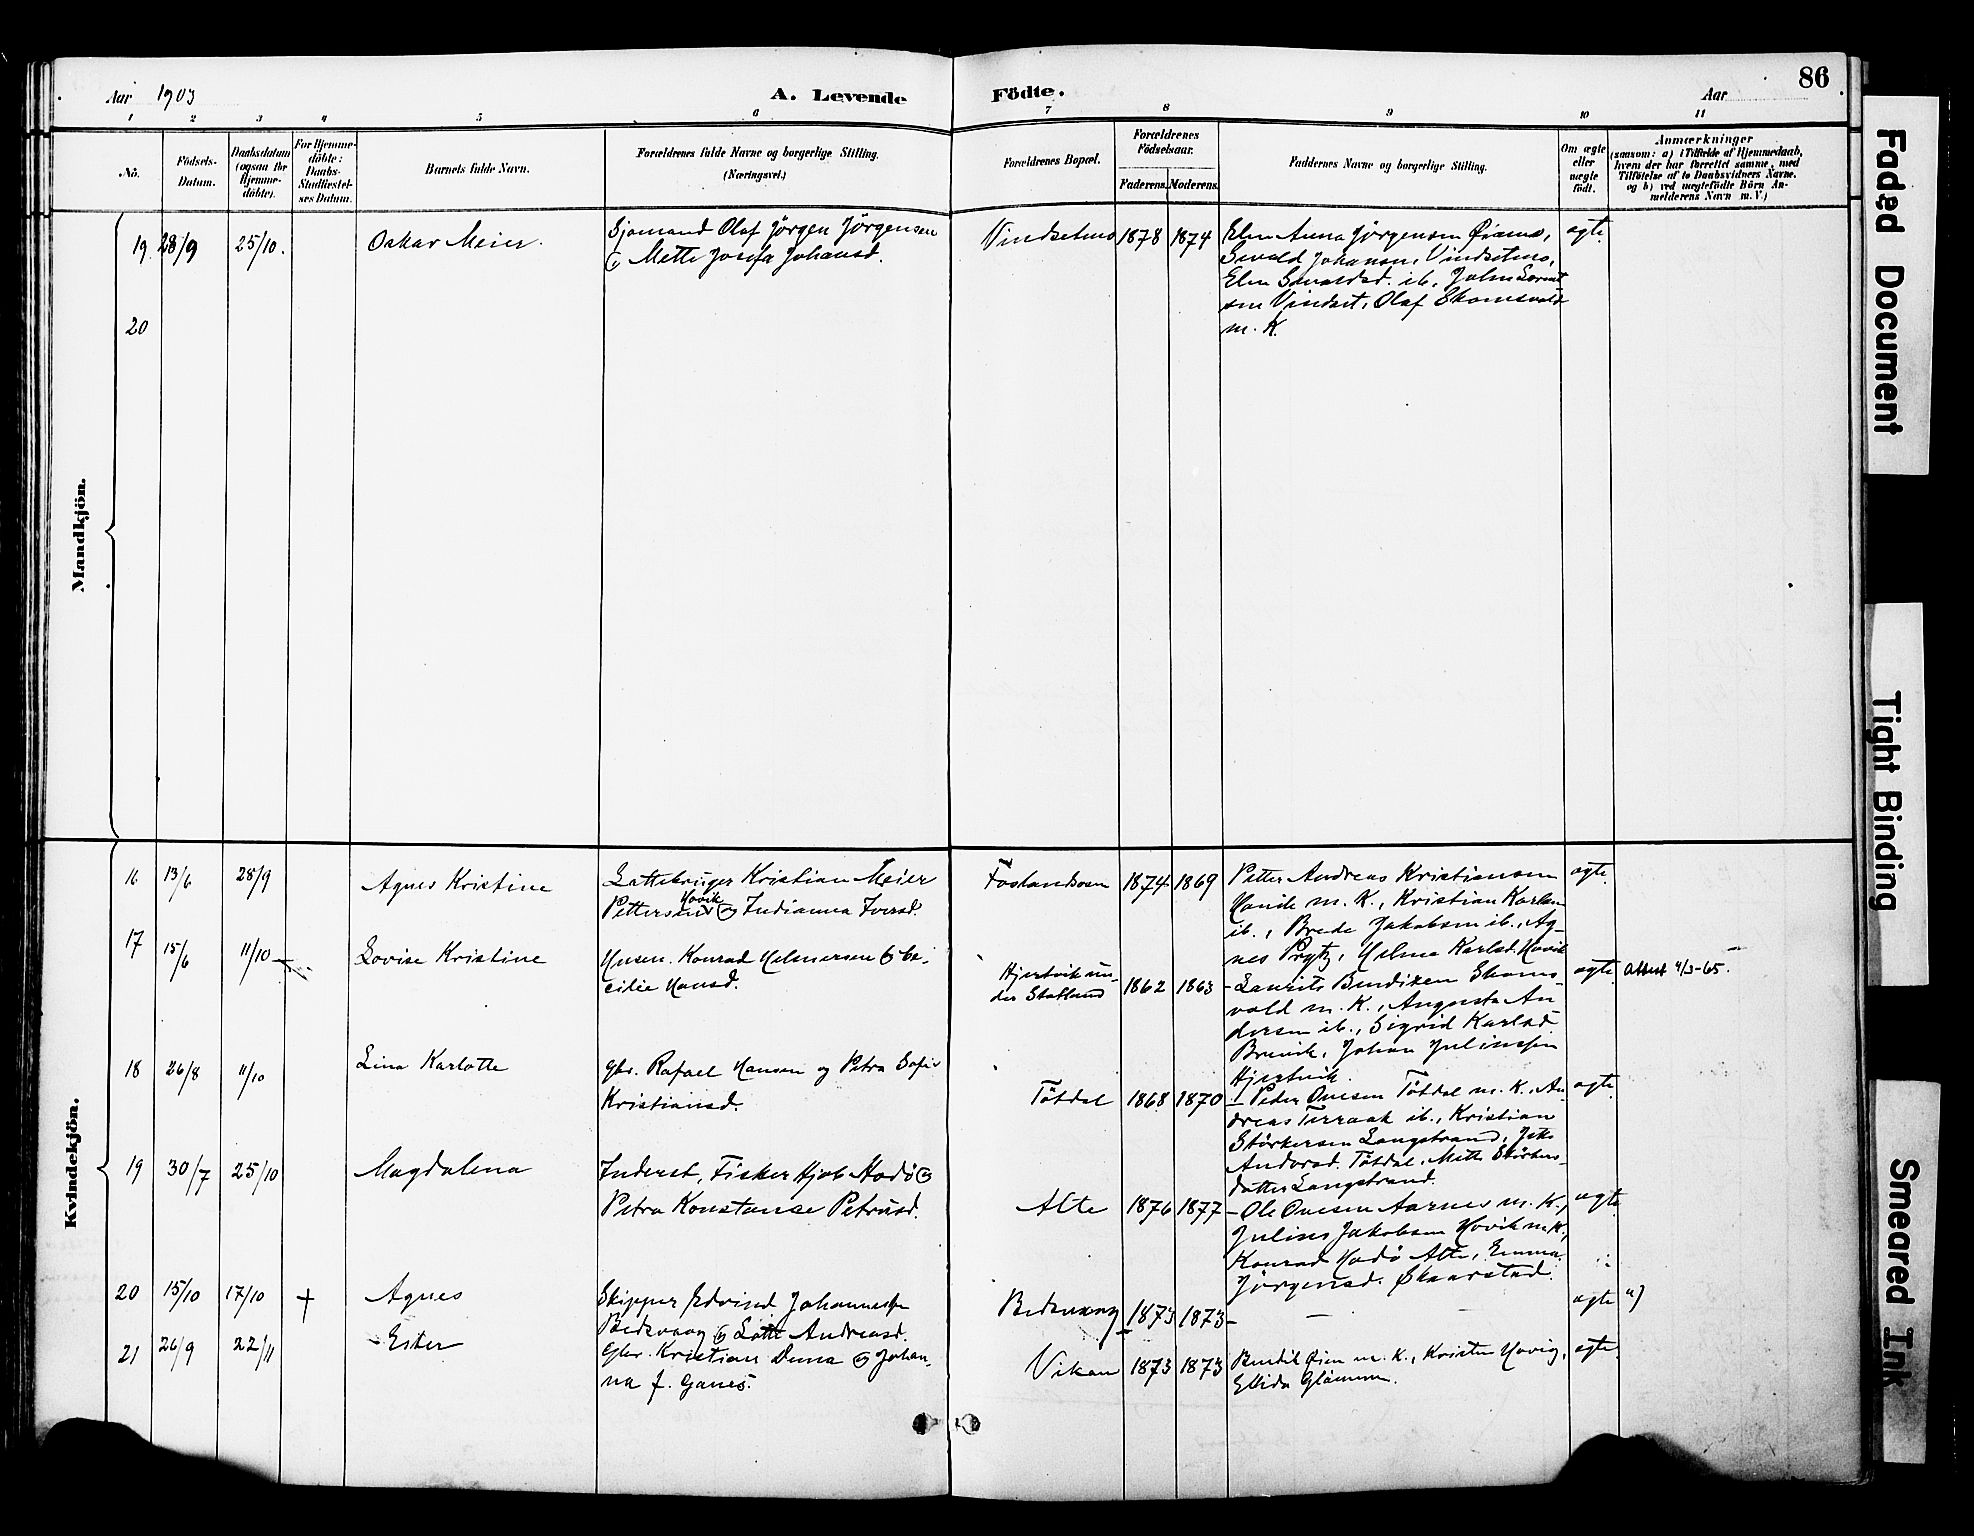 86
Aar 1903
A. Levende Födte.
Aar
1 2 3 4 5 6 7 8 9 10 11
No.
Födsels-
Datum.
Daabsdatum
(ogsaa for
Hjemme-
döbte).
For Hjemme-
döbte:
Daabs-
Stadfæstel-
ses Datum.
Barnets fulde Navn.
Forældrenes fulde Navne og borgerlige Stilling.
(Næringsvei.)
Forældrenes Bopæl.
Forældrenes
Födselsaar.
Faderens. Moderens.
Faddernes Navne og borgerlige Stilling.
Om ægte
eller
uægte
födt.
Anmærkninger
(saasom: a) i Tilfælde af Hjemmedaab,
hvem der har forrettet samme, med
Tilföielse af to Daabsvidners Navne,
og b) ved uægtefödte Börn An-
melderens Navn m. V.)
Mandkjön.
19. 28/9 25/10. Oskar Meier.
Sjömand Olaf Jörgen Jörgensen
Mette Josefa Johansd.
Vindsetmo 1878 1874
Elen Anna Jörgensen
Sivald Johansen, Vindsetmo,
ib., John
Vindset, Olaf
m. K.
ægte
20
Kvindekjön.
16 13/6 28/9 Agnes Kristine
Kristian Meier
Hovik
Pettersen og Indianna Iversd.
Foslandsosen 1874 1869
Petter Andreas Kristiansen
m. K., Kristian Karlsen
ib., Brede Jakobsen ib., Ag-
nes Prytz, Helma Karlsd. Hovik
ægte
17 15/6 11/10 Lovise Kristine
Husm. Konrad Helmersen og Ce-
cilie Hansd.
Hjertvik un-
der Statland 1862 1863
- Laurits Bendixen
m. K., Augusta An
dersen ib., Sigrid Karlsd.
Brevik, Johan Juliussen
Hjertvik.
ægte Attest 4/3-65.
18 26/8 11/10 Lina Karlotte
gbr. Rafael Hansen og Petra Sofie
Kristiansd.
Tötdal 1868 1870
- Peder Ovesen Tötdal m. K., An
dreas Terraak ib., Kristian
Störkersen Langstrand,
Tötdal, Mette
datter Langstrand.
ægte
19 30/7 25/10 Magdalena
Inderst, Fisker Hjab Hodö og
Petra Konstanse Petrusd.
Alte 1876 1877
- Ole Ovesen Aarnes m. K.,
Julius Jakobsen Hovik m. K.,
Konrad Hodö Alte, Emma
Jörgensd. Skaarstad.
ægte
20 15/10 17/10 + Agnes
Skipper Edvind Johannessen
og Andreasd.
1873 1873 - - -
ægte a)
21 26/9 22/11 Ester
gbr. Kristian Duna og Johan-
na f. Ganes.
Vikan 1873 1873
Bendik m. K., Kristen Hovig,
Ellida
ægte
Faded Document
Tight Binding
Smeared Ink